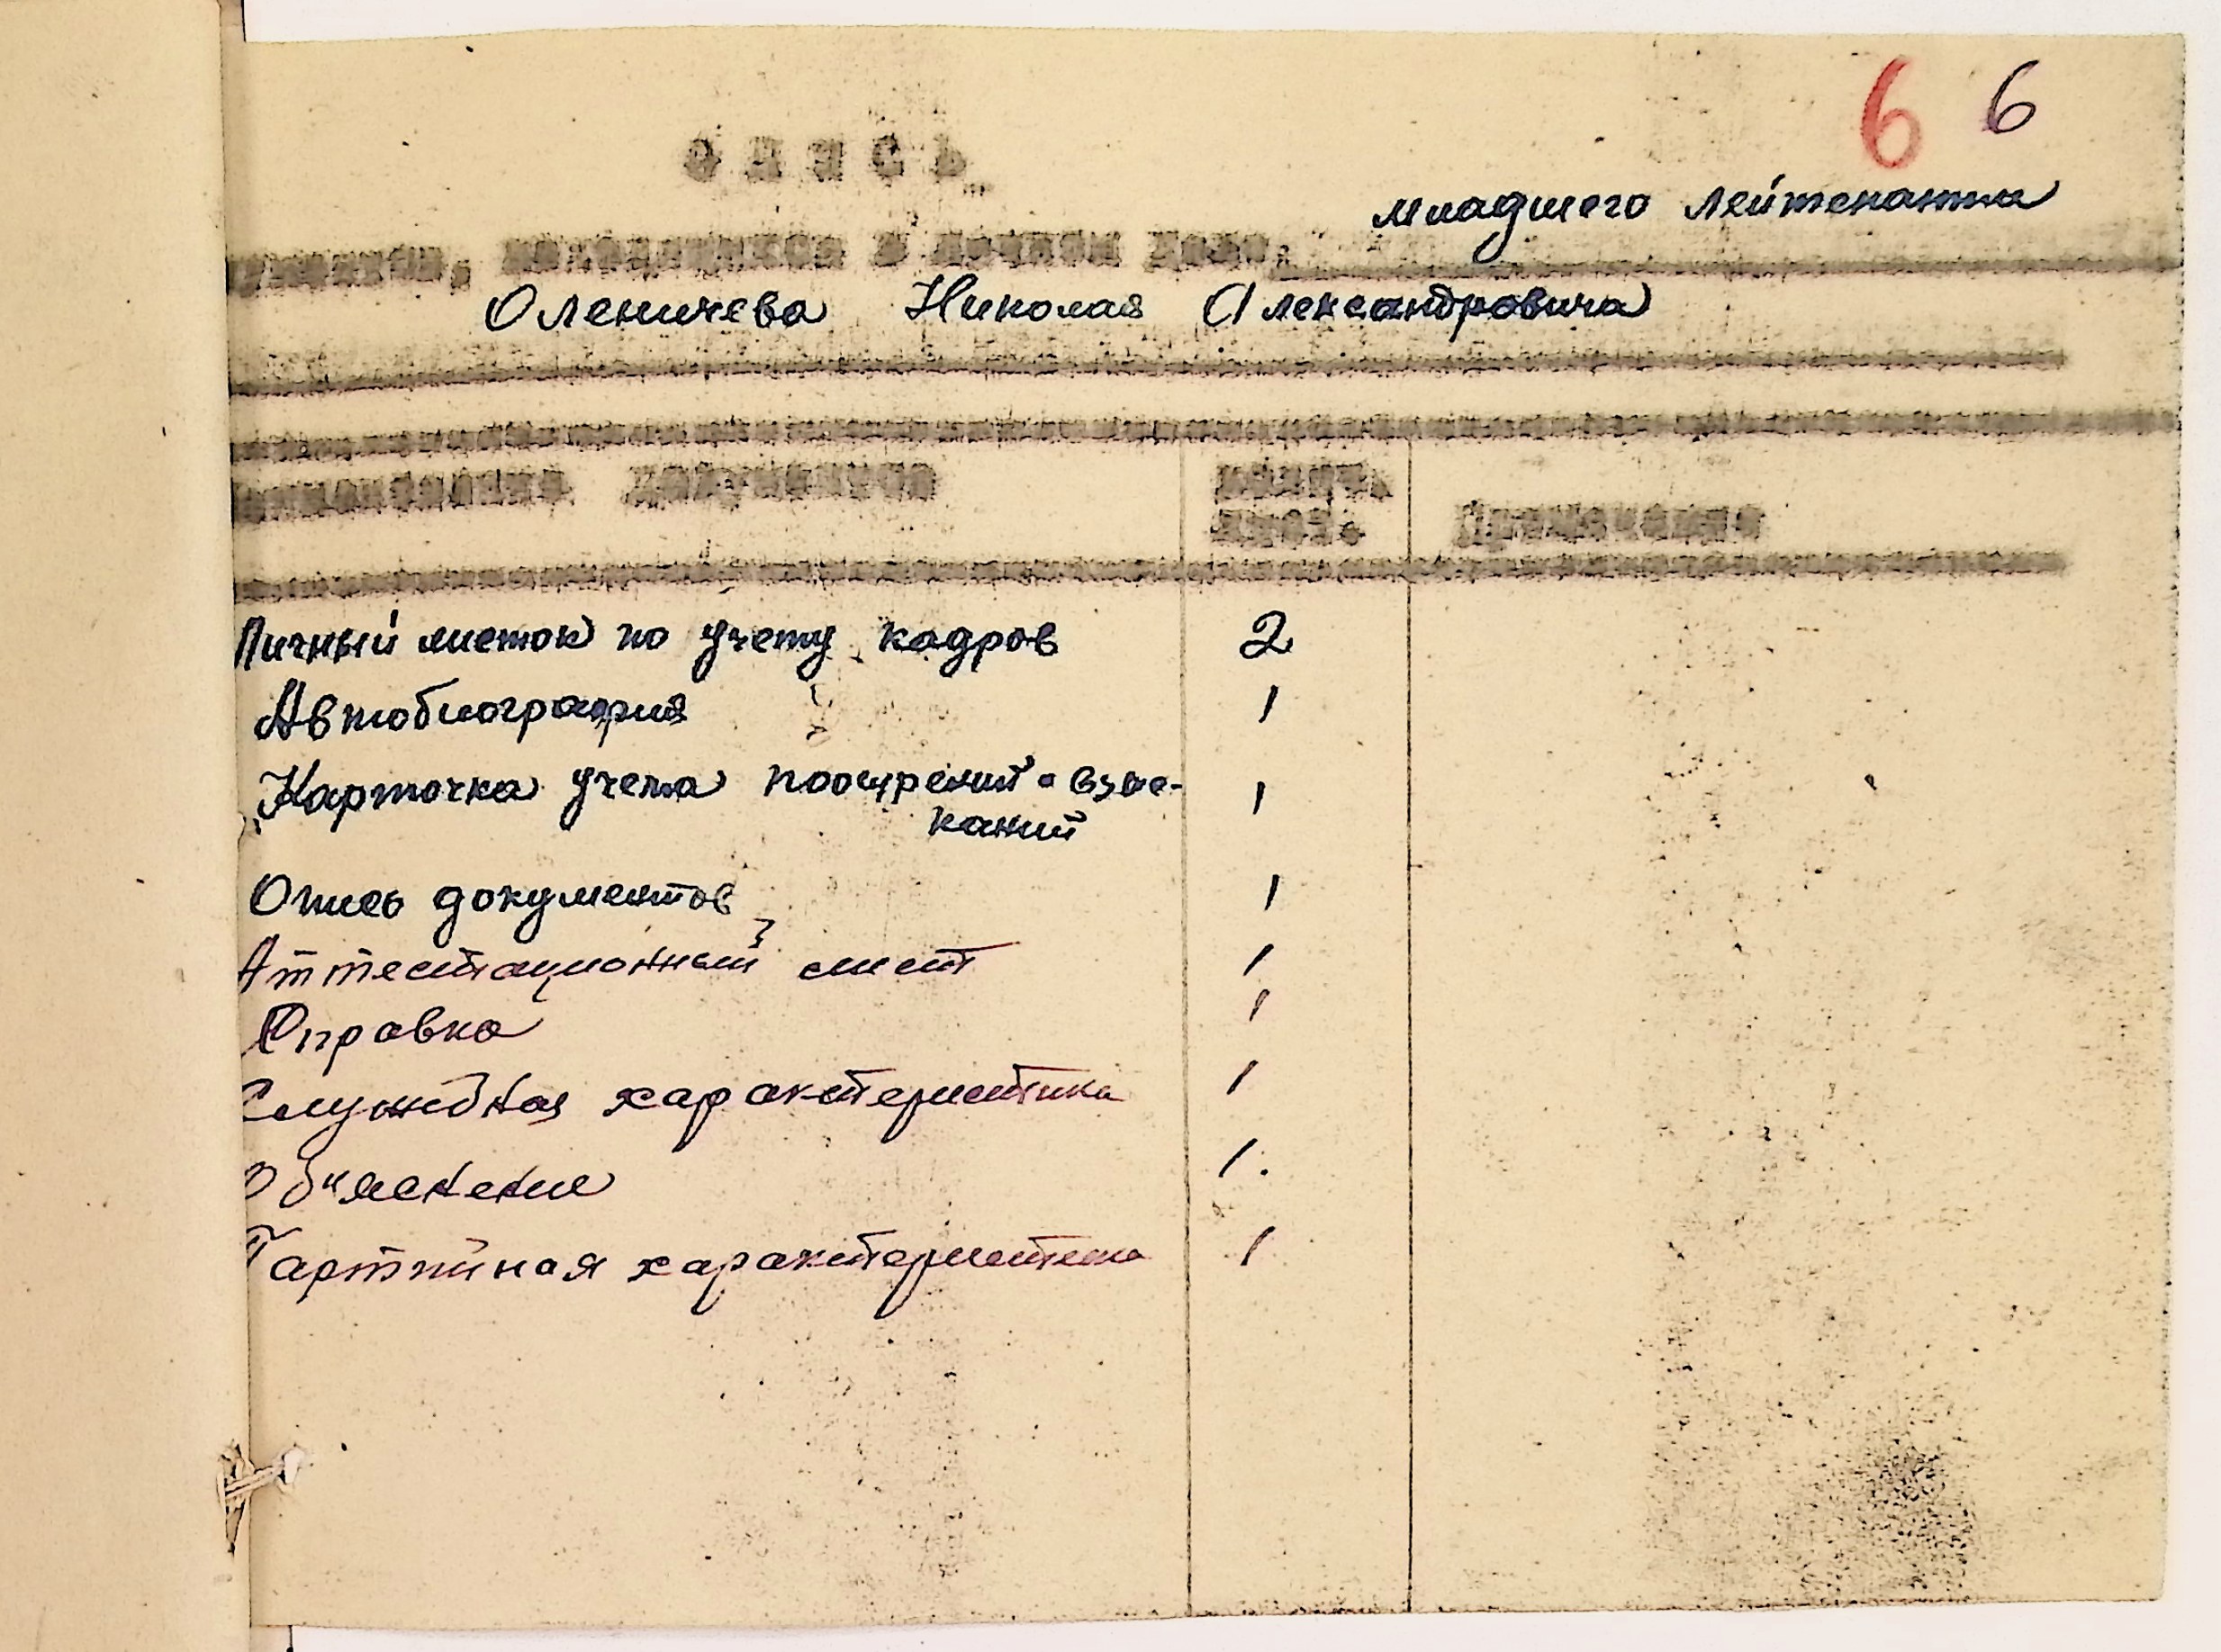 6 6
ОПИСЬ
младшего лейтенанта
документов, находящихся в личном деле,
Оленичева Николая Александровича
Наименование документов
Колич.
лист.
Примечание
Личный листок по учету кадров 2
Автобиография 1
Карточка учета поощрений и взыс- 1
каний
Опись документов 1
Аттестационный лист 1
Справка 1
Служебная характеристика 1
Объяснение 1.
Партийная характеристика 1